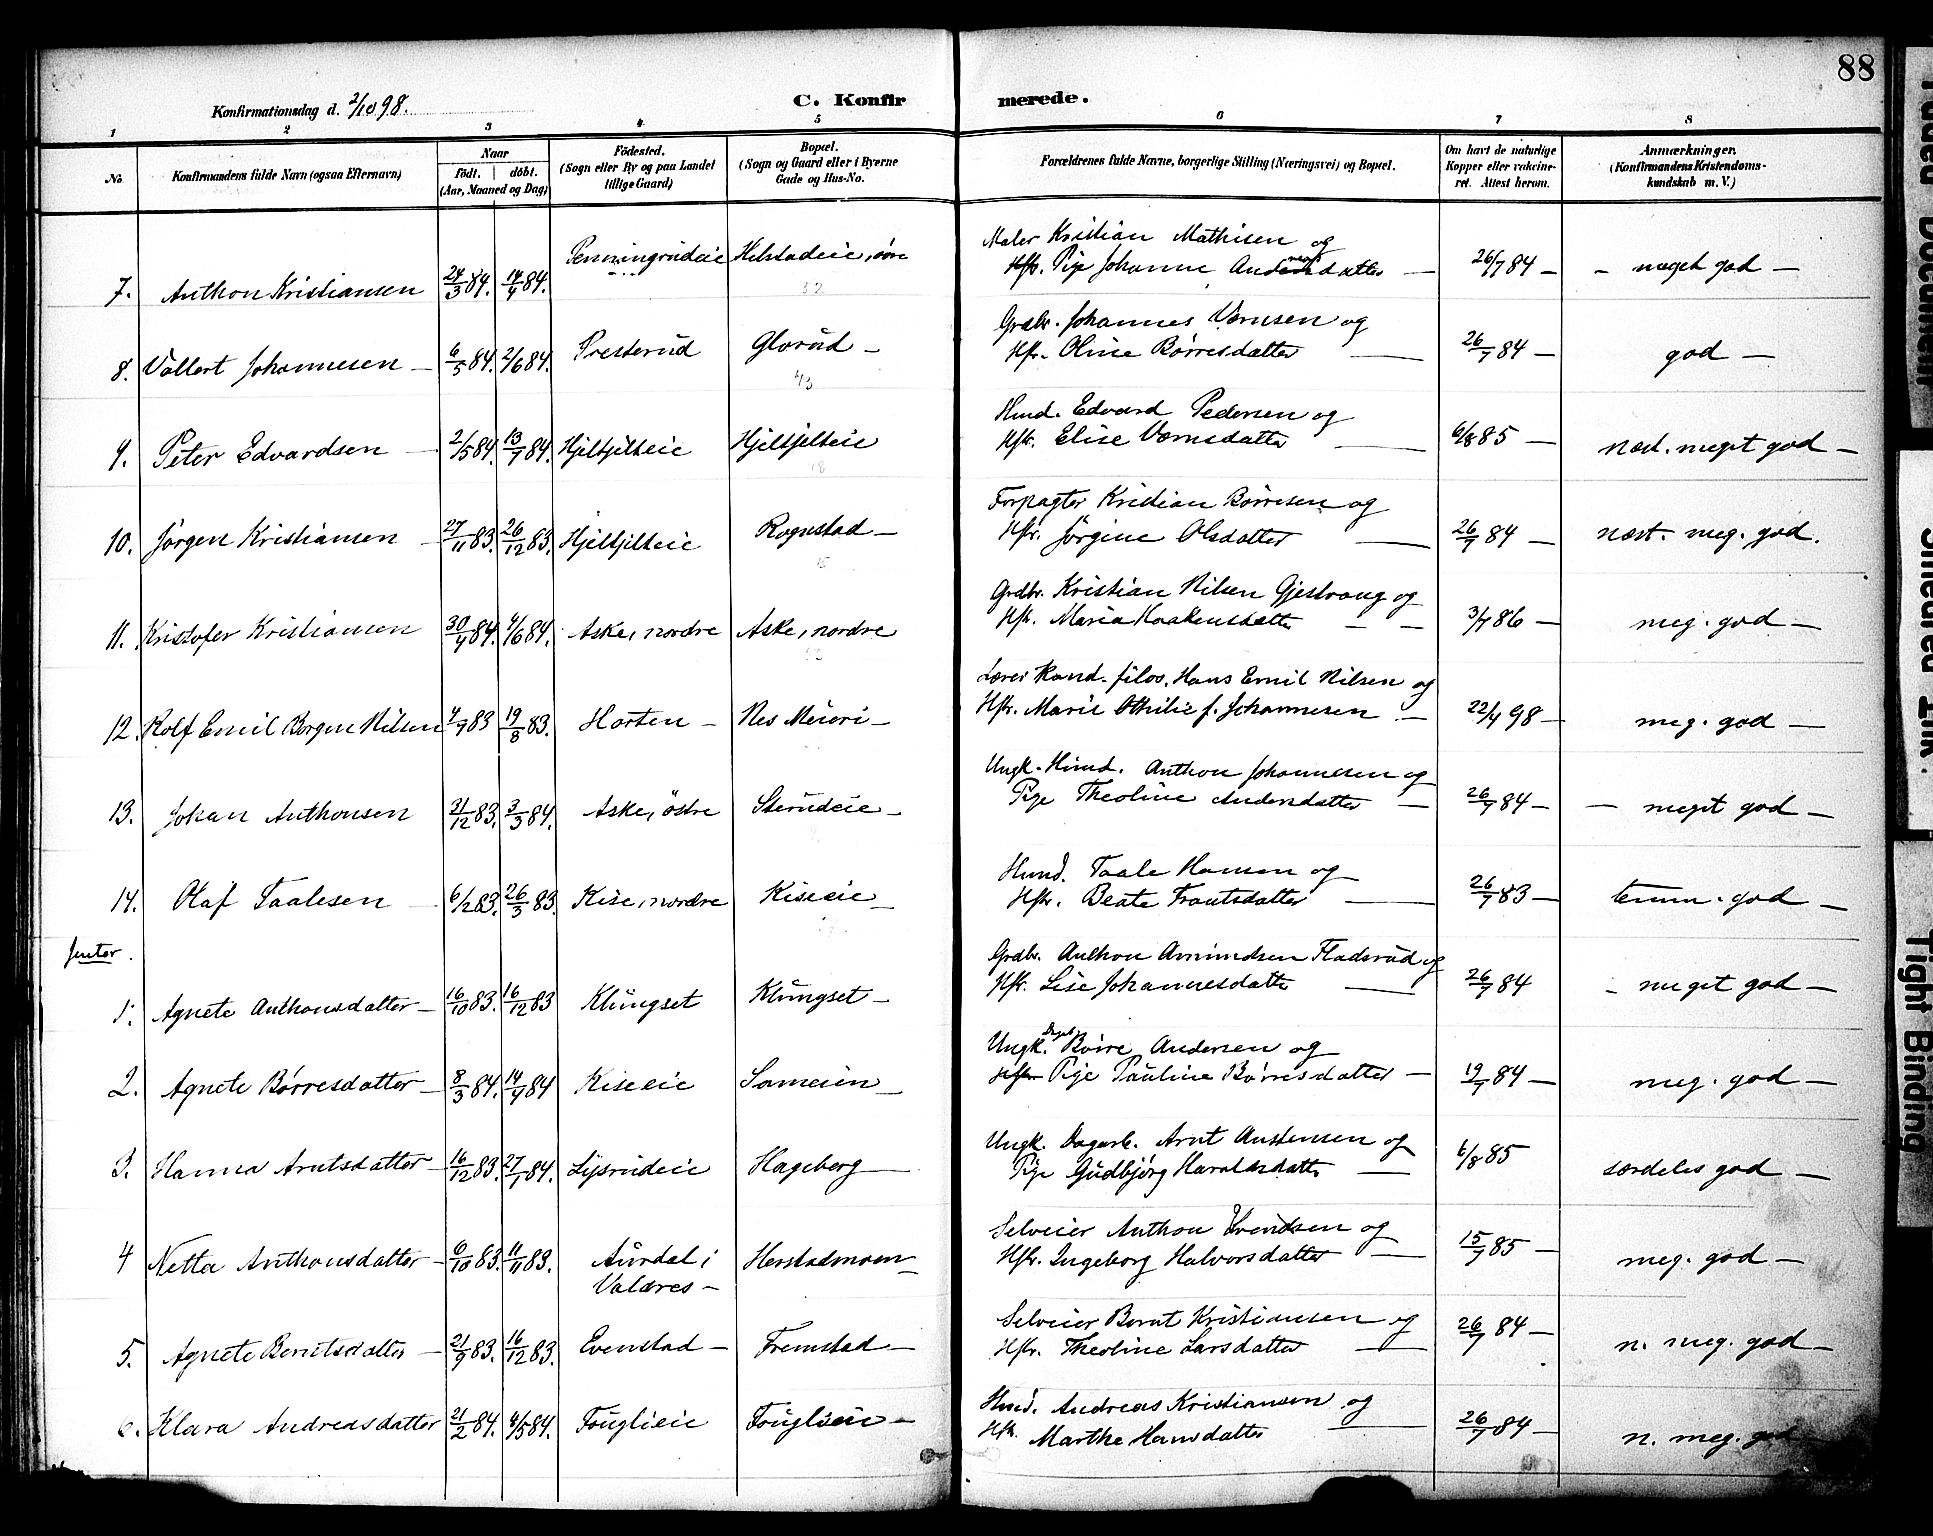 88
Konfirmationsdag d. 2/10 98.
C. Konfirmerede.
1 2 3 4 5 6 7 8
No
Konfirmandens fulde Navn (ogsaa Efternavn)
Naar
Födt. döbt.
(Aar, Maaned og Dag)
Födested.
(Sogn eller By og paa Landet
tillige Gaard)
Bopæl.
(Sogn og Gaard eller i Byerne
Gade og Hus-No.
Forældrenes fulde Navne, borgerlige Stilling (Næringsvei) og Bopæl.
Om havt de naturlige
Kopper eller vakcine-
ret. Attest herom.
Anmærkninger.
(Konfirmandens Kristendoms-
kundskab m. V.)
7. Anthon Kristiansen 24/3 84. 14/4 84. Penningrudeie Helstadeie, övre
Maler Kristian Mathisen og
Pige Johanne Andersdatter — 26/7 84 — – meget god —
8. Vollert Johannesen — 6/5 84. 2/6 84. Presterud Glorud —
Grdbr. Johannes Vernsen og
Hfr. Oline Börresdatter — 26/7 84 — god —
9. Peter Edvardsen — 2/5 84. 13/7 84. Hjeltjelteie Hjeltjelteie
Husmd. Edvard Pedersen og
Hfr. Elise Vernsdatter — 6/8 85 — næst. meget god —
10. Jörgen Kristiansen — 27/11 83. 26/12 83. Hjeltjelteie Rognstad —
Forpagter Kristian Börresen og
Hfr. Jörgine Olsdatter — 26/7 84 — næst. meg. god.
11. Kristofer Kristiansen 30/4 84. 4/6 84. Aske, nordre Aske, nordre
Grdbr. Kristian Nilsen Gjestvang og
Hfr. Maria Haakensdatter — — 3/7 86 — meg. god —
12. Rolf Emil Borgen Nilsen 4/7 83 19/8 83. Horten — Nes Meieri —
Lærer Kand. filos. Hans Emil Nilsen og
Hfr. Marie Othilie f. Johannesen — 22/4 98 — meg. god —
13. Johan Anthonsen 31/12 83. 3/3 84. Aske, östre Sterudeie —
Ungk. Husmd. Anthon Johannesen og
Pige Theoline Andersdatter — 26/7 84 — — meget god —
14. Olaf Taalesen — 6/2 83. 26/3 83. Kise, nordre Kiseeie —
Husmd. Taale Hansen og
Hfr. Beate Frantsdatter — 26/7 83 — temm. god —
Jenter.
1. Agnete Anthonsdatter — 16/10 83. 16/12 83 Klungset Klungset —
Grdbr. Anthon Amundsen Fladsrud og
Hfr. Lise Johannesdatter — 26/7 84 – meget god —
2. Agnete Börresdatter — 8/3 84. 14/4 84 Kiseeie Sameien —
Ungk. Börre Andersen og
Pige Pauline Börresdatter — 19/7 84 — meg. god —
3. Hanna Arntsdatter — 16/12 83. 27/1 84. Lysrudeie Hageberg —
Ungk. Dagarb. Arnt Austensen og
Pige Gudbjörg Haraldsdatter — 6/8 85 særdeles god —
4 Netta Anthonsdatter — 6/10 83. 11/11 83. Aurdal i
Valdres — Herstadmoen —
Selveier Anthon Svendsen og
Hfr. Ingeborg Halvorsdatter — 15/7 85 — meg. god —
5. Agnete Berntsdatter — 21/9 83. 16/12 83. Evenstad — Fremstad —
Selveier Bernt Kristiansen og
Hfr. Theoline Larsdatter — 26/7 84 — n. meg. god —
6. Klara Andreasdatter 21/2 84. 4/5 84. Fouglieie Fouglieie —
Husmd. Andreas Kristiansen og
Hfr. Marthe Hansdatter — 26/7 84 — n. meg. god
Faded Document
Smeared Ink.
Tight Binding